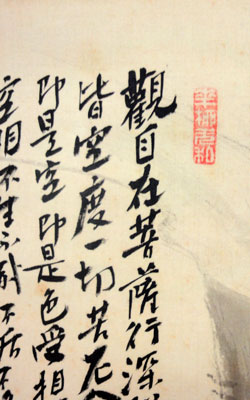 觀自在菩薩行深
皆空度一切苦厄舍
即是空即是色受想
空相不生不滅不垢不